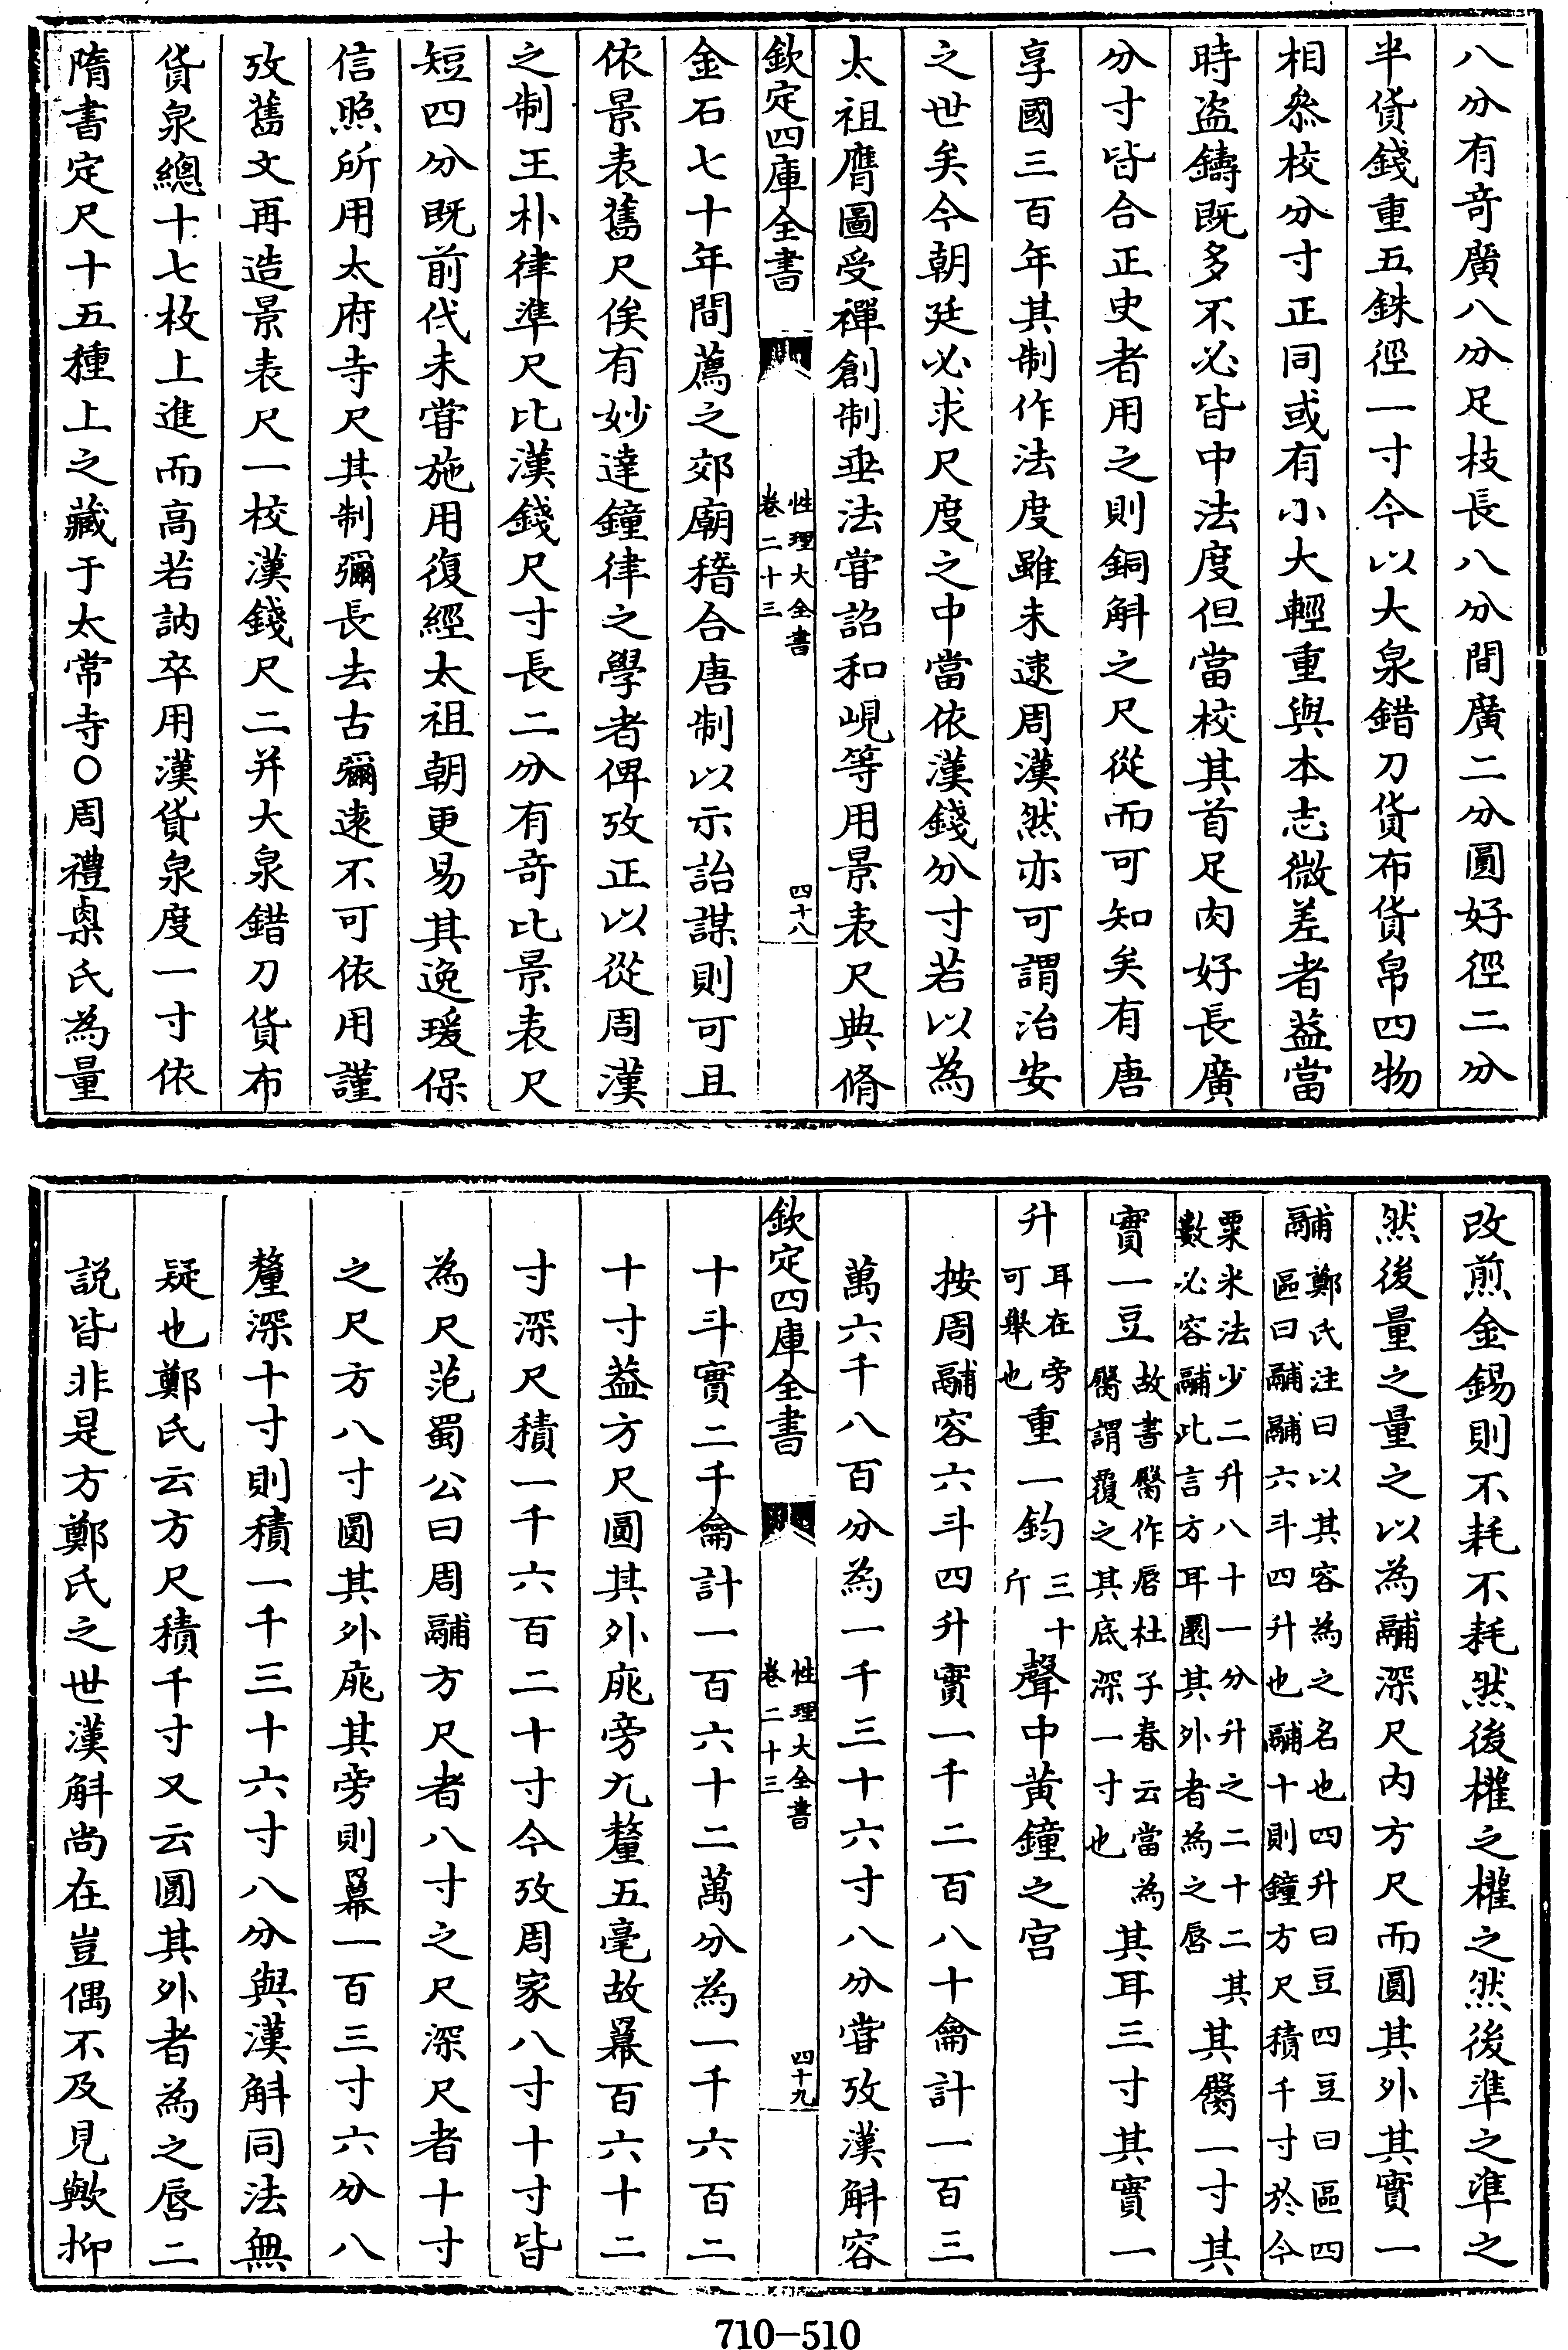 八分有竒廣八分足枝長八分間廣二分圓好徑二分
半貨錢重五銖徑一寸今以大泉錯刀貨布貨帛四物
相叅校分寸正同或有小大輕重與本志微差者葢當
時盗鑄既多不必皆中法度但當校其首足肉好長廣
分寸皆合正史者用之則銅斛之尺從而可知矣有唐
享國三百年其制作法度雖未逮周漢然亦可謂治安
之世矣今朝廷必求尺度之中當依漢錢分寸若以為
太祖膺圖受禪創制垂法嘗詔和峴等用景表尺典脩
欽定四庫全書
性理大全書
卷二十三
四十八
金石七十年間薦之郊廟稽合唐制以示詒謀則可且
依景表舊尺俟有妙達鐘律之學者俾攷正以從周漢
之制王朴律準尺比漢錢尺寸長二分有竒比景表尺
短四分既前代未嘗施用復經太祖朝更易其逸瑗保
信照所用太府寺尺其制彌長去古彌逺不可依用謹
攷舊文再造景表尺一校漢錢尺二并大泉錯刀貨布
貨泉總十七枚上進而高若訥卒用漢貨泉度一寸依
隋書定尺十五種上之藏于太常寺○周禮㮚氏為量
改煎金錫則不耗不耗然後權之權之然後凖之凖之
然後量之量之以為鬴深尺内方尺而圓其外其實一
鬴鄭氏注曰以其容為之名也四升曰豆四豆曰區四
區曰鬴鬴六斗四升也鬴十則鐘方尺積千寸於今
粟米法少二升八十一分升之二十二其
數必容鬴此言方耳圜其外者為之唇其臋一寸其
實一豆故書臋作唇杜子春云當為
臋謂覆之其底深一寸也其耳三寸其實一
升耳在旁
可舉也重一鈞三十
斤聲中黄鐘之宫
按周鬴容六斗四升實一千二百八十龠計一百三
萬六千八百分為一千三十六寸八分嘗攷漢斛容
欽定四庫全書
性理大全書
卷二十三
四十九
十斗實二千龠計一百六十二萬分為一千六百二
十寸葢方尺圓其外庣旁九釐五毫故羃百六十二
寸深尺積一千六百二十寸今攷周家八寸十寸皆
為尺范蜀公曰周鬴方尺者八寸之尺深尺者十寸
之尺方八寸圓其外庣其旁則羃一百三寸六分八
釐深十寸則積一千三十六寸八分與漢斛同法無
疑也鄭氏云方尺積千寸又云圓其外者為之唇二
説皆非是方鄭氏之世漢斛尚在豈偶不及見歟抑
710-510